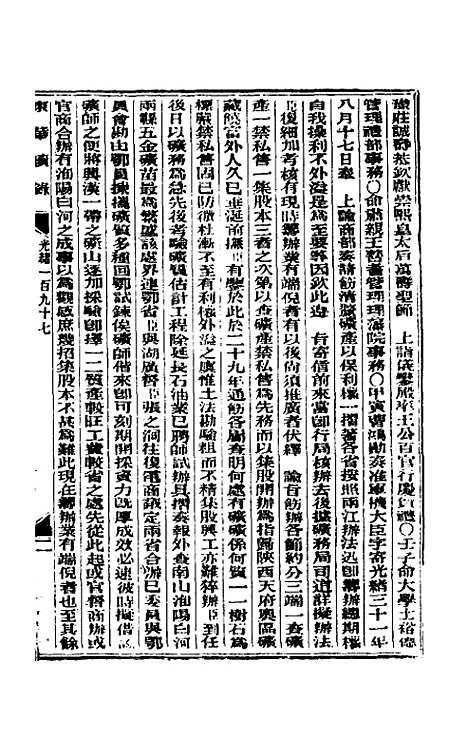 康頤昭豫莊誠壽恭欽獻崇熙皇太后萬壽聖節　上詣儀鸞殿率王公百官行慶賀禮〇壬子命大學士裕德
管理禮部事務〇命肅親王善耆管理理藩院事務〇甲寅曹鴻勛奏准軍機大臣字寄光緒三十一年
八月十七日奉　上諭商部奏請飭清釐礦產以保利權一摺著各省按照兩江辦法迅卽籌辦總期權
自我操利不外溢是爲至要等因欽此遵　旨寄信前來當卽行局核辦去後據礦務局司道詳擬辦法
臣復細加考核有現時籌辦業有端倪者有以後尚須推廣者伏繹　諭旨飭辦各節約分三端一查礦
產一禁私售一集股本三者之次第以查礦產禁私售爲先務而以集股開辦爲指歸陝西天府奧區礦
藏饒富外人久已垂涎前撫臣有鑒於此於二十九年通飭各屬查明何處有礦礦係何質一一樹石爲
標嚴禁私售固已防微杜漸不至有利權外溢之虞惟土法勘驗粗而不精集股興工亦難猝辦臣到任
後日以礦務爲急先後考驗礦質估計工程除延長石油業已聘師試辦具摺奏報外查南山洵陽白河
兩縣五金礦苗最爲繁盛該處界連鄂省臣與湖廣督臣張之洞往復電商議定兩省合辦已委員與鄂
員會勘由鄂員採獲礦質多種回鄂試鍊俟礦師偕來卽可刻期開採資力旣厚成效必速彼時擬借該
礦師之便將興漢一帶之礦山逐加採驗卽擇一二質產較旺工費較省之處先從此起或官督商辦或
官商合辦有洵陽白河之成事以爲觀感庶幾招集股本不甚爲難此現在籌辦業有端倪者也至其餘
東華續錄　光緒一百九十七